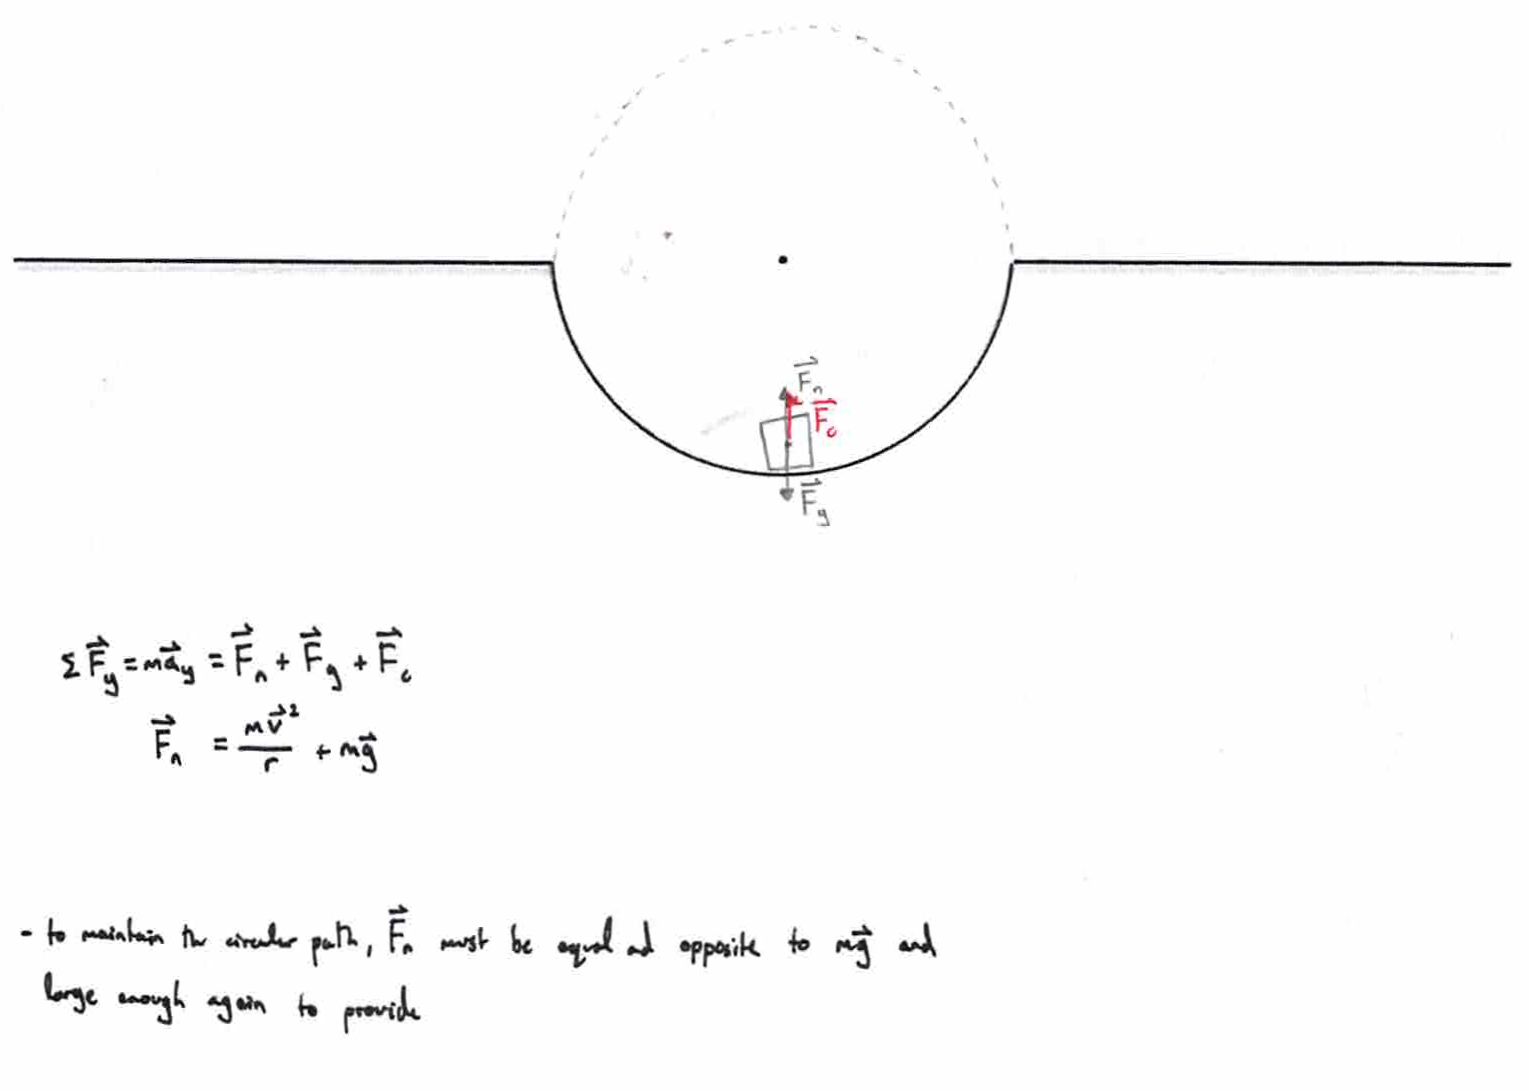 F⃗ₙ
F⃗c
F⃗g
Σ F⃗y = ma⃗y = F⃗ₙ + F⃗g + F⃗c
F⃗ₙ = mv⃗²/r + mg⃗
- to maintain the circular path, F⃗ₙ must be equal ad opposite to mg⃗ and
large enough again to provide